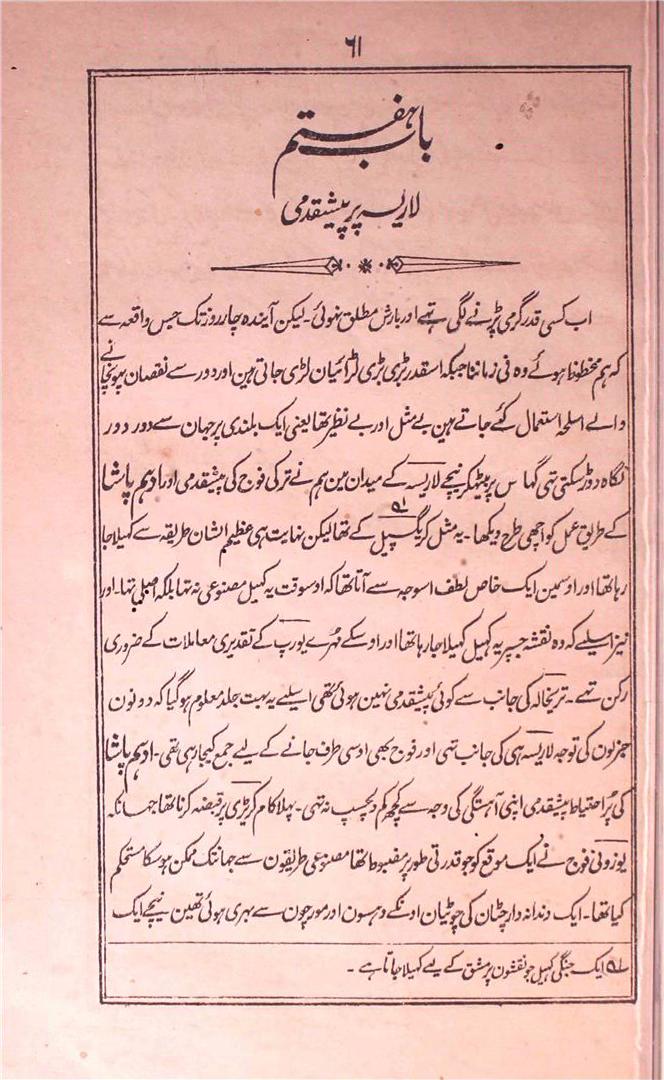 ۶۱
باب ہفتم
لاریسہ پر پیشقدمی
اب کسی قدر گرمی پڑنے لگی تہے اور بارش مطلق نہوئی۔ لیکن آیندہ چار روز تک جس واقعہ سے
کہ ہم محظوظ ہوئے وہ فی زماننا جبکہ اسقدر بڑی بڑی لڑائیان لڑی جاتی ہین اور دور سے نقصان پہونچانے
والے اسلحہ استعمال کئے جاتے ہین بے مثل اور بے نظیر تھا یعنی ایک بلندی پر جہان سے دور دور
نگاہ دوڑ سکتی تہی گہاس پر بیٹھکر نیچے لاریسہ کے میدان مین ہم نے ترکی فوج کی پیشقدمی اور ادہم پاشا
کے طریق عمل کو اچھی طرح دیکھا۔ یہ مثل کریگسپیل ۵۱ کے تھا لیکن نہایت ہی عظیم الشان طریقہ سے کہیلا جا
رہا تھا اور اوسمین ایک خاص لطف اسوجہ سے آتا تھا کہ اوسوقت یہ کہیل مصنوعی نہ تھا بلکہ اصلی تہا۔ اور
نیز اسلیے کہ وہ نقشہ جسپر یہ کہیل کہیلا جا رہا تھا اور اوسکے مُہرے یورپ کے تقدیری معاملات کے ضروری
رکن تہے۔ تریخالہ کی جانب سے کوئی پیشقدمی نہین ہوئی تھی اسلیے یہ بہت جلد معلوم ہو گیا کہ دونون
جنرلون کی توجہ لاریسہ ہی کی جانب تہی اور فوج بھی اوسی طرف جانے کے لیے جمع کیجا رہی تھی۔ ادہم پاشا
کی پُر احتیاط پیشقدمی اپنی آہستگی کی وجہ سے کچھ کم دلچسپ نہ تہی۔ پہلا کام کریڑی پر قبضہ کرنا تھا جہانکہ
یوزونی فوج نے ایک موقع کو جو قدرتی طور پر مضبوط تھا مصنوعی طریقون سے جہانتک ممکن ہو سکا مستحکم
کیا تھا۔ ایک دندانہ دار چٹان کی چوٹیان اونکے دہسون اور مورچون سے بہری ہوئی تھین نیچے ایک
۵۱ ایک جنگی کہیل جو نقشون پر مشق کے لیے کہیلا جاتا ہے۔